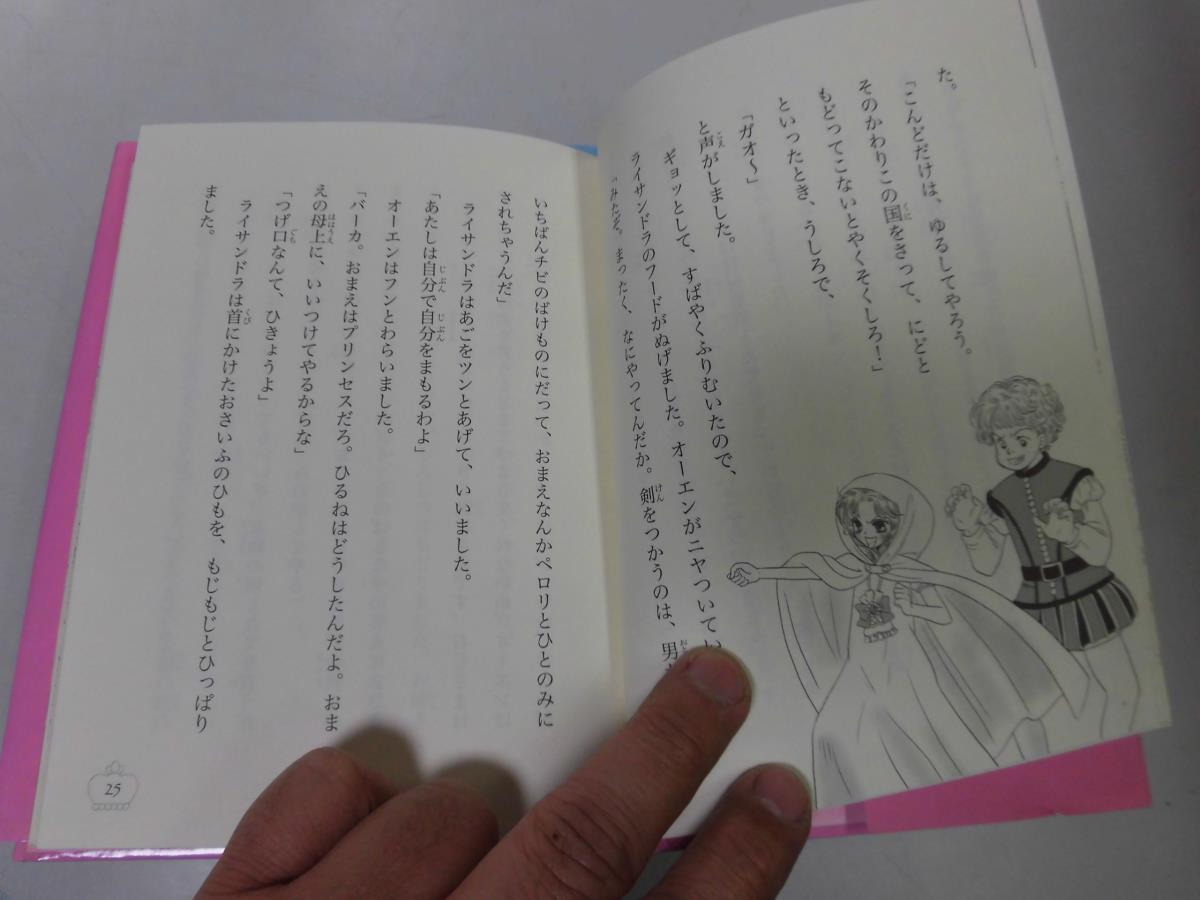 た。
「こんどだけは、ゆるしてやろう。
そのかわりこの国をさって、にどと
もどってこないとやくそくしろ！」
といったとき、うしろで、
「ガオ〜」
と声がしました。
ギョッとして、すばやくふりむいたので、
ライサンドラのフードがぬげました。オーエンがニヤついてい
「みたぞ。まったく、なにやってんだか。剣をつかうのは、男
いちばんチビのばけものにだって、おまえなんかペロリとひとのみに
されちゃうんだ」
ライサンドラはあごをツンとあげて、いいました。
「あたしは自分で自分をまもるわよ」
オーエンはフンとわらいました。
「バーカ。おまえはプリンセスだろ。ひるねはどうしたんだよ。おま
えの母上に、いいつけてやるからな」
「つげ口なんて、ひきょうよ」
ライサンドラは首にかけたおさいふのひもを、もじもじとひっぱり
ました。
25